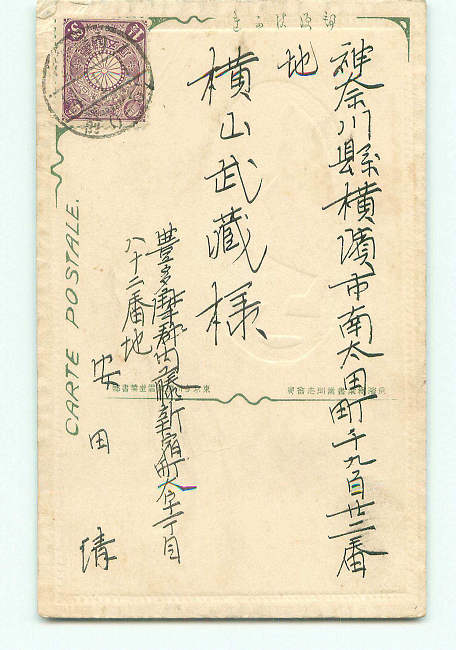 神奈川縣横濱市南太田町千九百廿二番
地
横山武藏様
豊多摩郡内藤新宿町大字一丁目
八十二番地
安田 清
CARTE POSTALE.